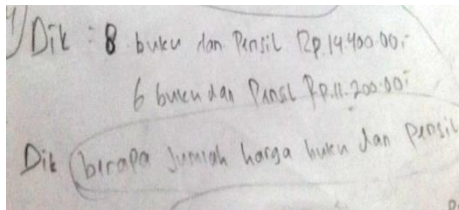 1) Dik : 8 buku dan Pensil Rp.14.400.00;-
6 buku dan Pensil Rp.11.200.00;-
Dit berapa Jumlah harga buku dan pensil